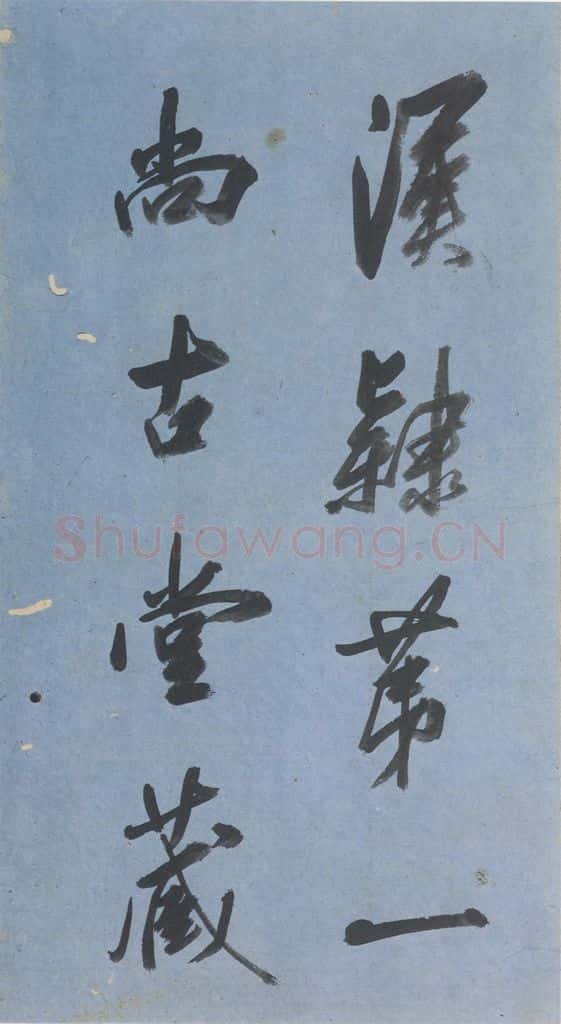 漢隸第一
尚古堂藏
Shufawang.CN